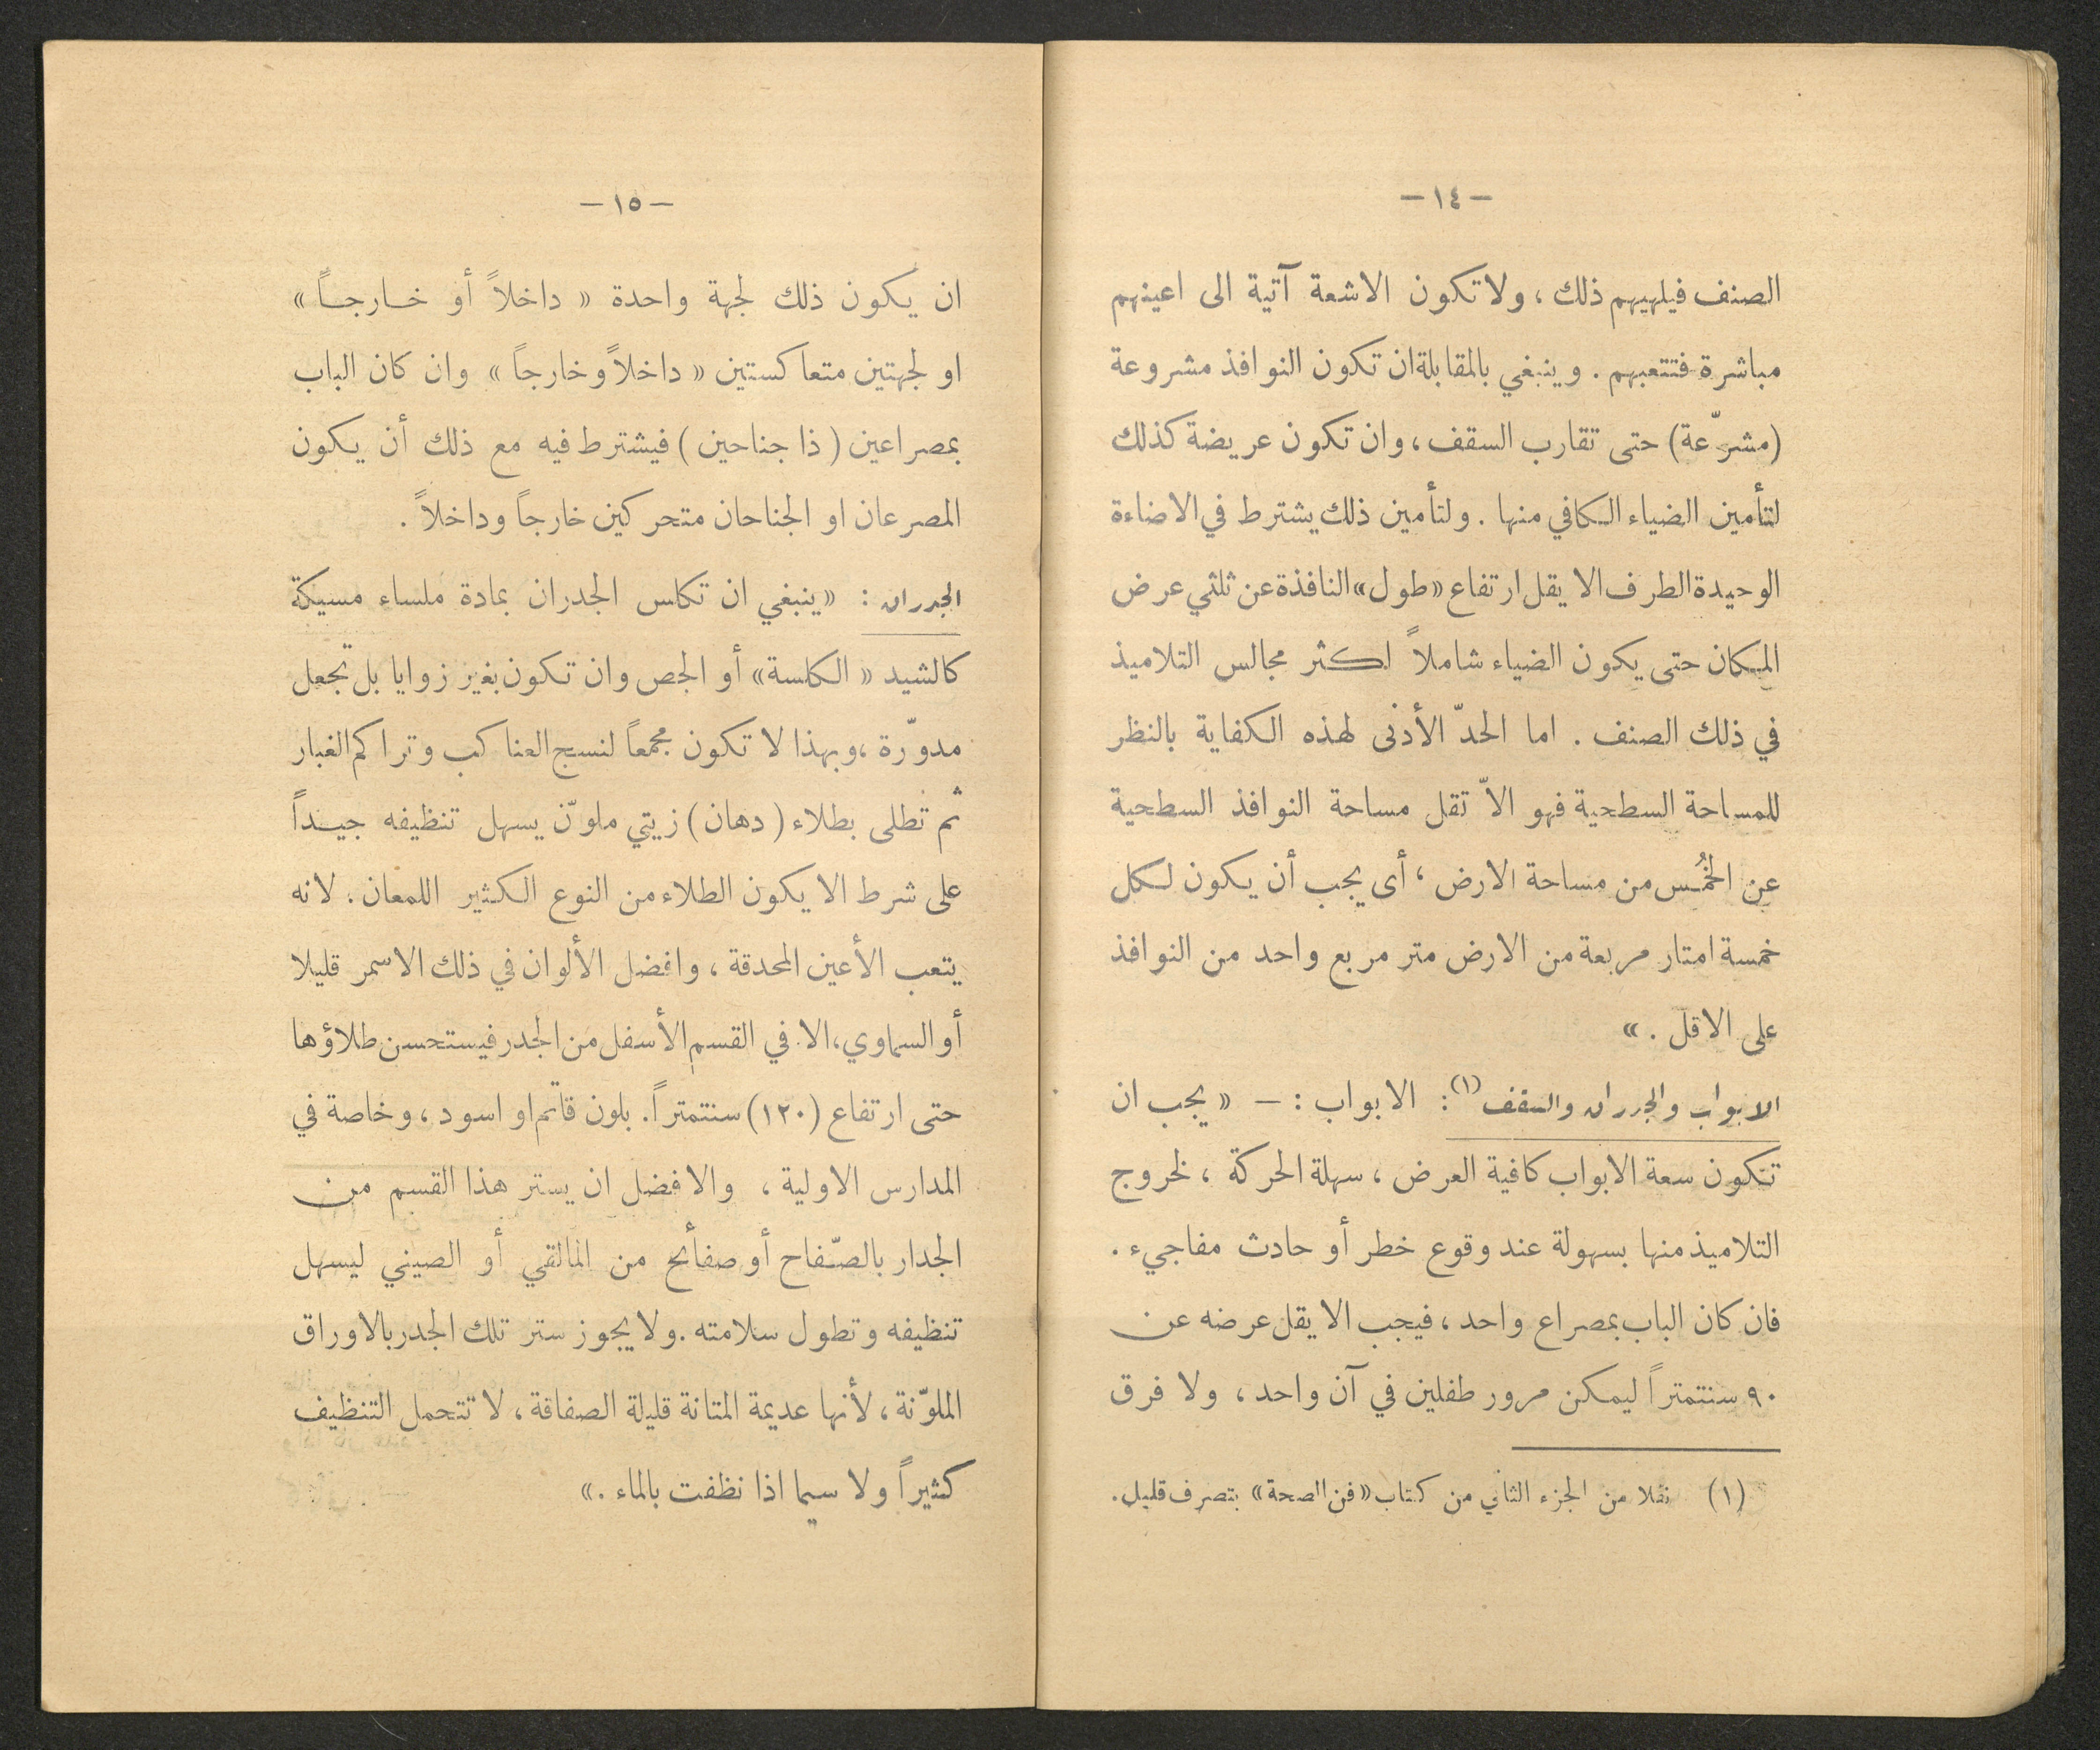 — ١٤ —
الصنف فيلهيهم ذلك ، ولا تكون الاشعة آتية الى اعينهم
مباشرة فتتعبهم . وينبغي بالمقابلة ان تكون النوافذ مشروعة
(مشرّعة) حتى تقارب السقف ، وان تكون عريضة كذلك
لتأمين الضياء الكافي منها . ولتأمين ذلك يشترط في الاضاءة
الوحيدة الطرف الا يقل ارتفاع «طول» النافذة عن ثلثي عرض
المكان حتى يكون الضياء شاملاً لكثر مجالس التلاميذ
في ذلك الصنف . اما الحدّ الأدنى لهذه الكفاية بالنظر
للمساحة السطحية فهو الاّ تقل مساحة النوافذ السطحية
عن الخُمس من مساحة الارض ، أى يجب أن يكون لكل
خمسة امتار مربعة من الارض متر مربع واحد من النوافذ
على الاقل . »
الابواب والجدران والسقف (١) : الابواب : — « يجب ان
تكون سعة الابواب كافية العرض ، سهلة الحركة ، لخروج
التلاميذ منها بسهولة عند وقوع خطر أو حادث مفاجيء .
فان كان الباب بمصراع واحد ، فيجب الا يقل عرضه عن
٩٠ سنتمتراً ليمكن مرور طفلين في آن واحد ، ولا فرق
(١) نقلا من الجزء الثاني من كتاب «فن الصحة» بتصرف قليل .
— ١٥ —
ان يكون ذلك لجهة واحدة « داخلاً أو خارجاً »
او لجهتين متعاكستين « داخلاً وخارجاً » وان كان الباب
بمصراعين ( ذا جناحين ) فيشترط فيه مع ذلك أن يكون
المصرعان او الجناحان متحركين خارجاً وداخلاً .
الجدران : « ينبغي ان تكلس الجدران بمادة ملساء مسيكة
كالشيد « الكلسة» أو الجص وان تكون بغير زوايا بل تجعل
مدوّرة ، وبهذا لا تكون مجمعاً لنسج العناكب وتراكم الغبار
ثم تطلى بطلاء ( دهان ) زيتي ملوّن يسهل تنظيفه جيداً
على شرط الا يكون الطلاء من النوع الكثير اللمعان . لانه
يتعب الأعين المحدقة ، وافضل الألوان في ذلك الاسمر قليلا
أو السماوي ، الا في القسم الأسفل من الجدر فيستحسن طلاؤها
حتى ارتفاع (١٢٠) سنتمتراً . بلون قاتم او اسود ، وخاصة في
المدارس الاولية ، والافضل ان يستر هذا القسم من
الجدار بالصّفاح أو صفائح من المالقي أو الصيني ليسهل
تنظيفه وتطول سلامته . ولا يجوز ستر تلك الجدر بالاوراق
الملوّنة ، لأنها عديمة المتانة قليلة الصفاقة ، لا تتحمل التنظيف
كثيراً ولا سيما اذا نظفت بالماء . »